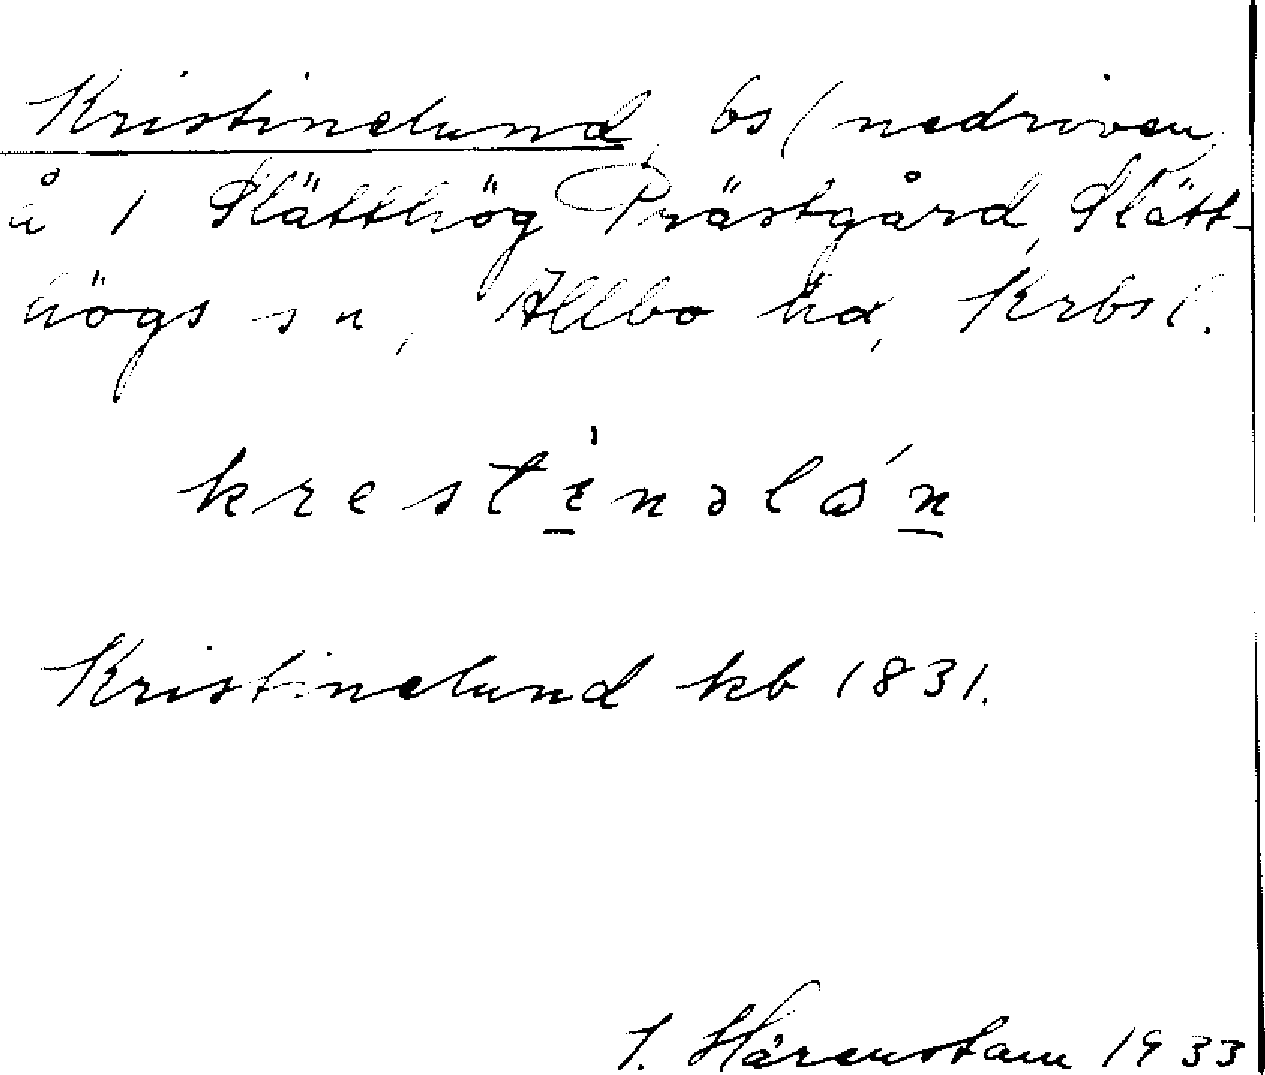 Kristinelund, bs (nedriven)
å 1 Slätthög Prästgård, Slätt-
högs sn, Allbo hd, Krbsl.
krestinəlón
Kristinelund kb 1831.
J. Hårenstam 1933